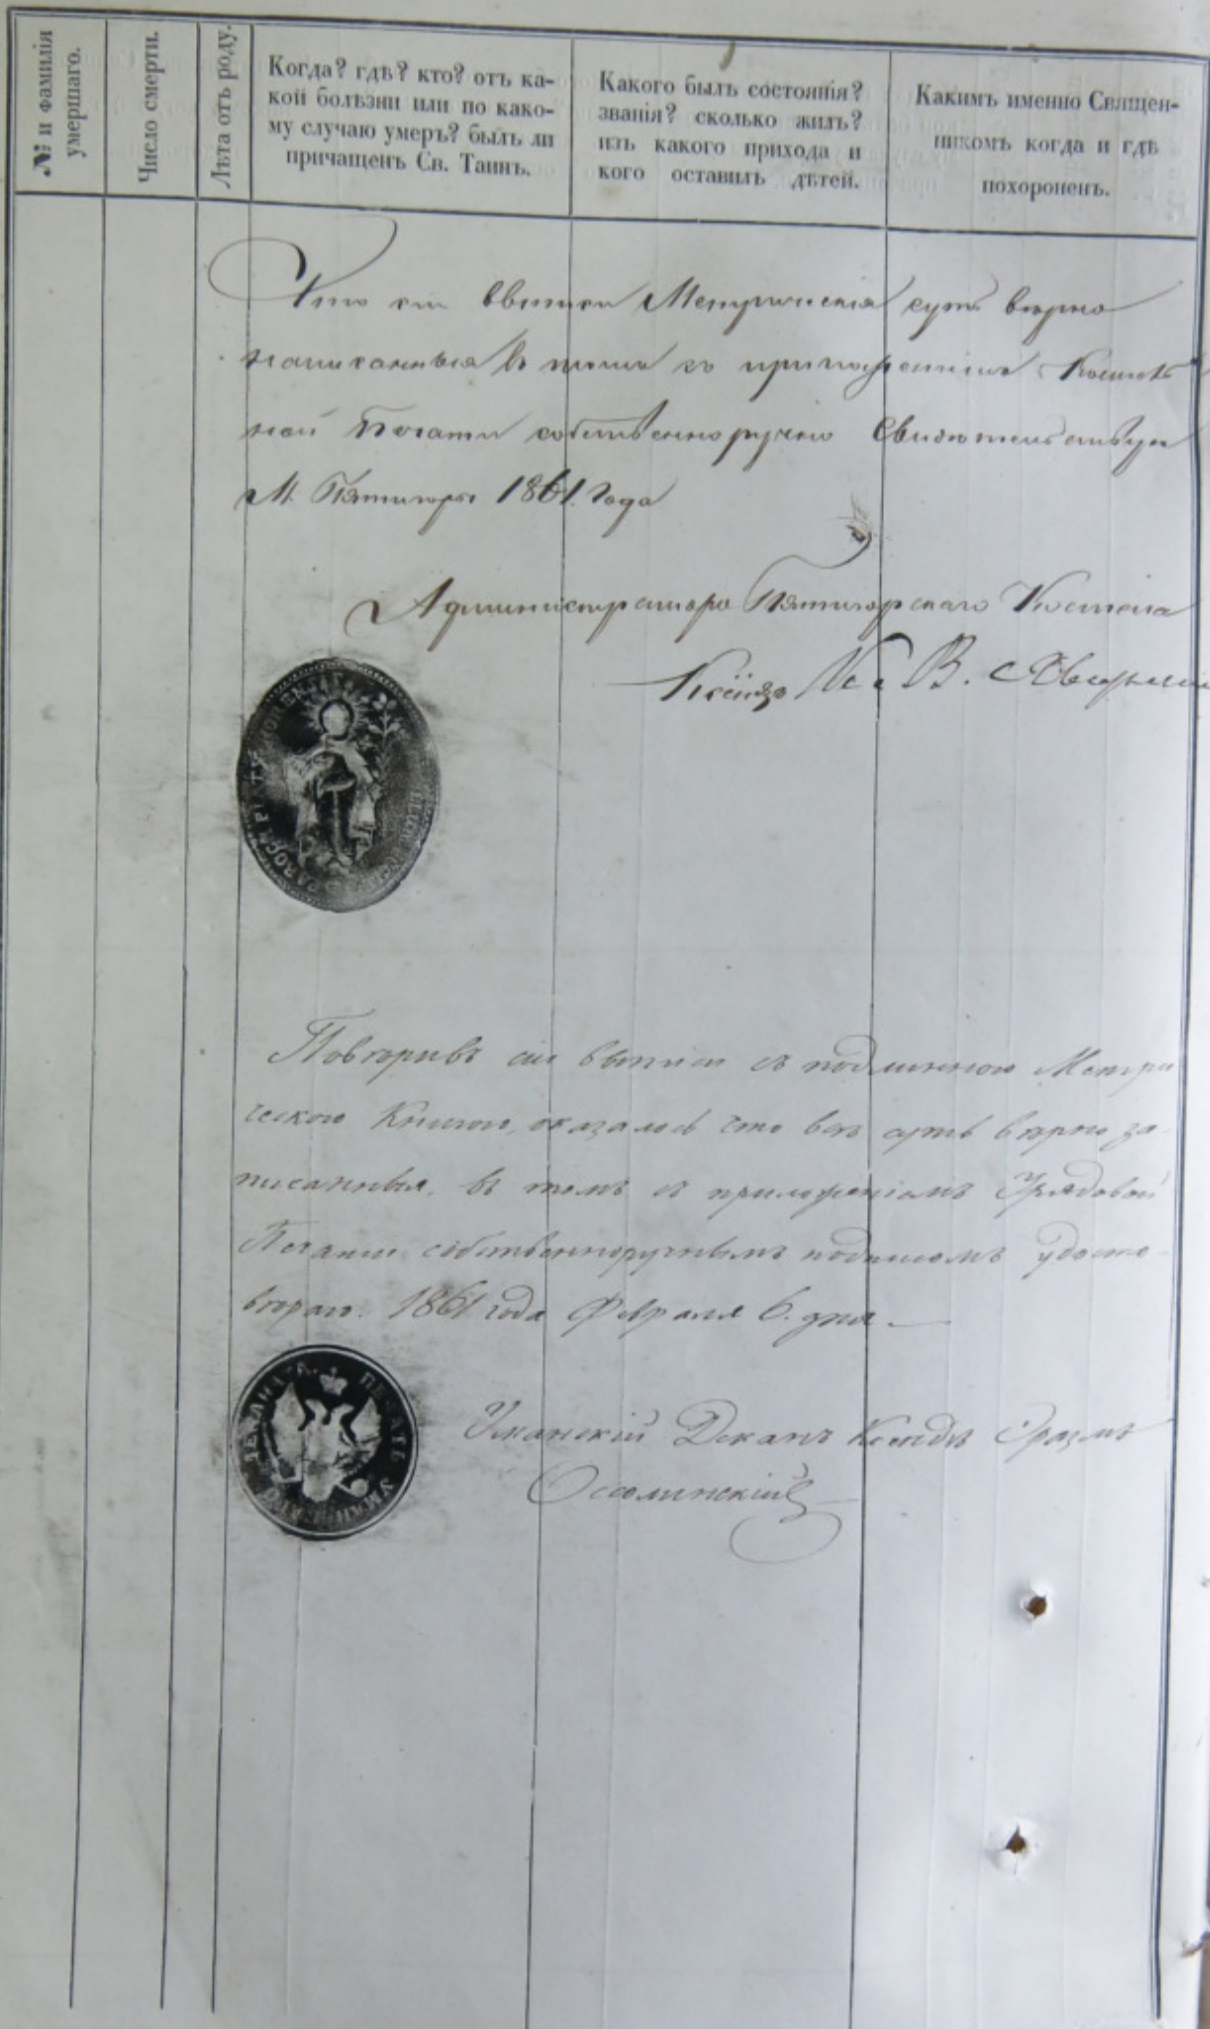 № и фамилія
умершаго.
Число смерти.
Лѣта отъ роду.
Когда? гдѣ? кто? отъ ка-
кой болѣзни или по како-
му случаю умеръ? былъ ли
причащенъ Св. Таинъ.
Какого былъ состоянія?
званія? сколько жилъ?
изъ какого прихода и
кого оставилъ дѣтей.
Какимъ именно Священ-
никомъ когда и гдѣ
похороненъ.
Что сіи Метрическія суть вѣрно
написанныя в томъ съ приложеніемъ
ной Печати собственноручно Свидетельствую
М. Пятигоры 1861. Года
Администраторъ Пятигорскаго Костела
Ксёндзъ В.
Повѣривъ сіи выписи съ подлинною Метри
ческою Книгою, оказалось что всѣ суть вѣрно за-
писанныя, въ томъ съ приложеніемъ Урядовой
Печати собственноручнымъ подписомъ удосто-
вѣряю. 1861 года Февраля 6. дня.
ПЕЧАТЬ УМАНСКАГО ДЕКАНАТА.
Уманскій Деканъ Ксендзъ Эразмъ
Оссолинскій